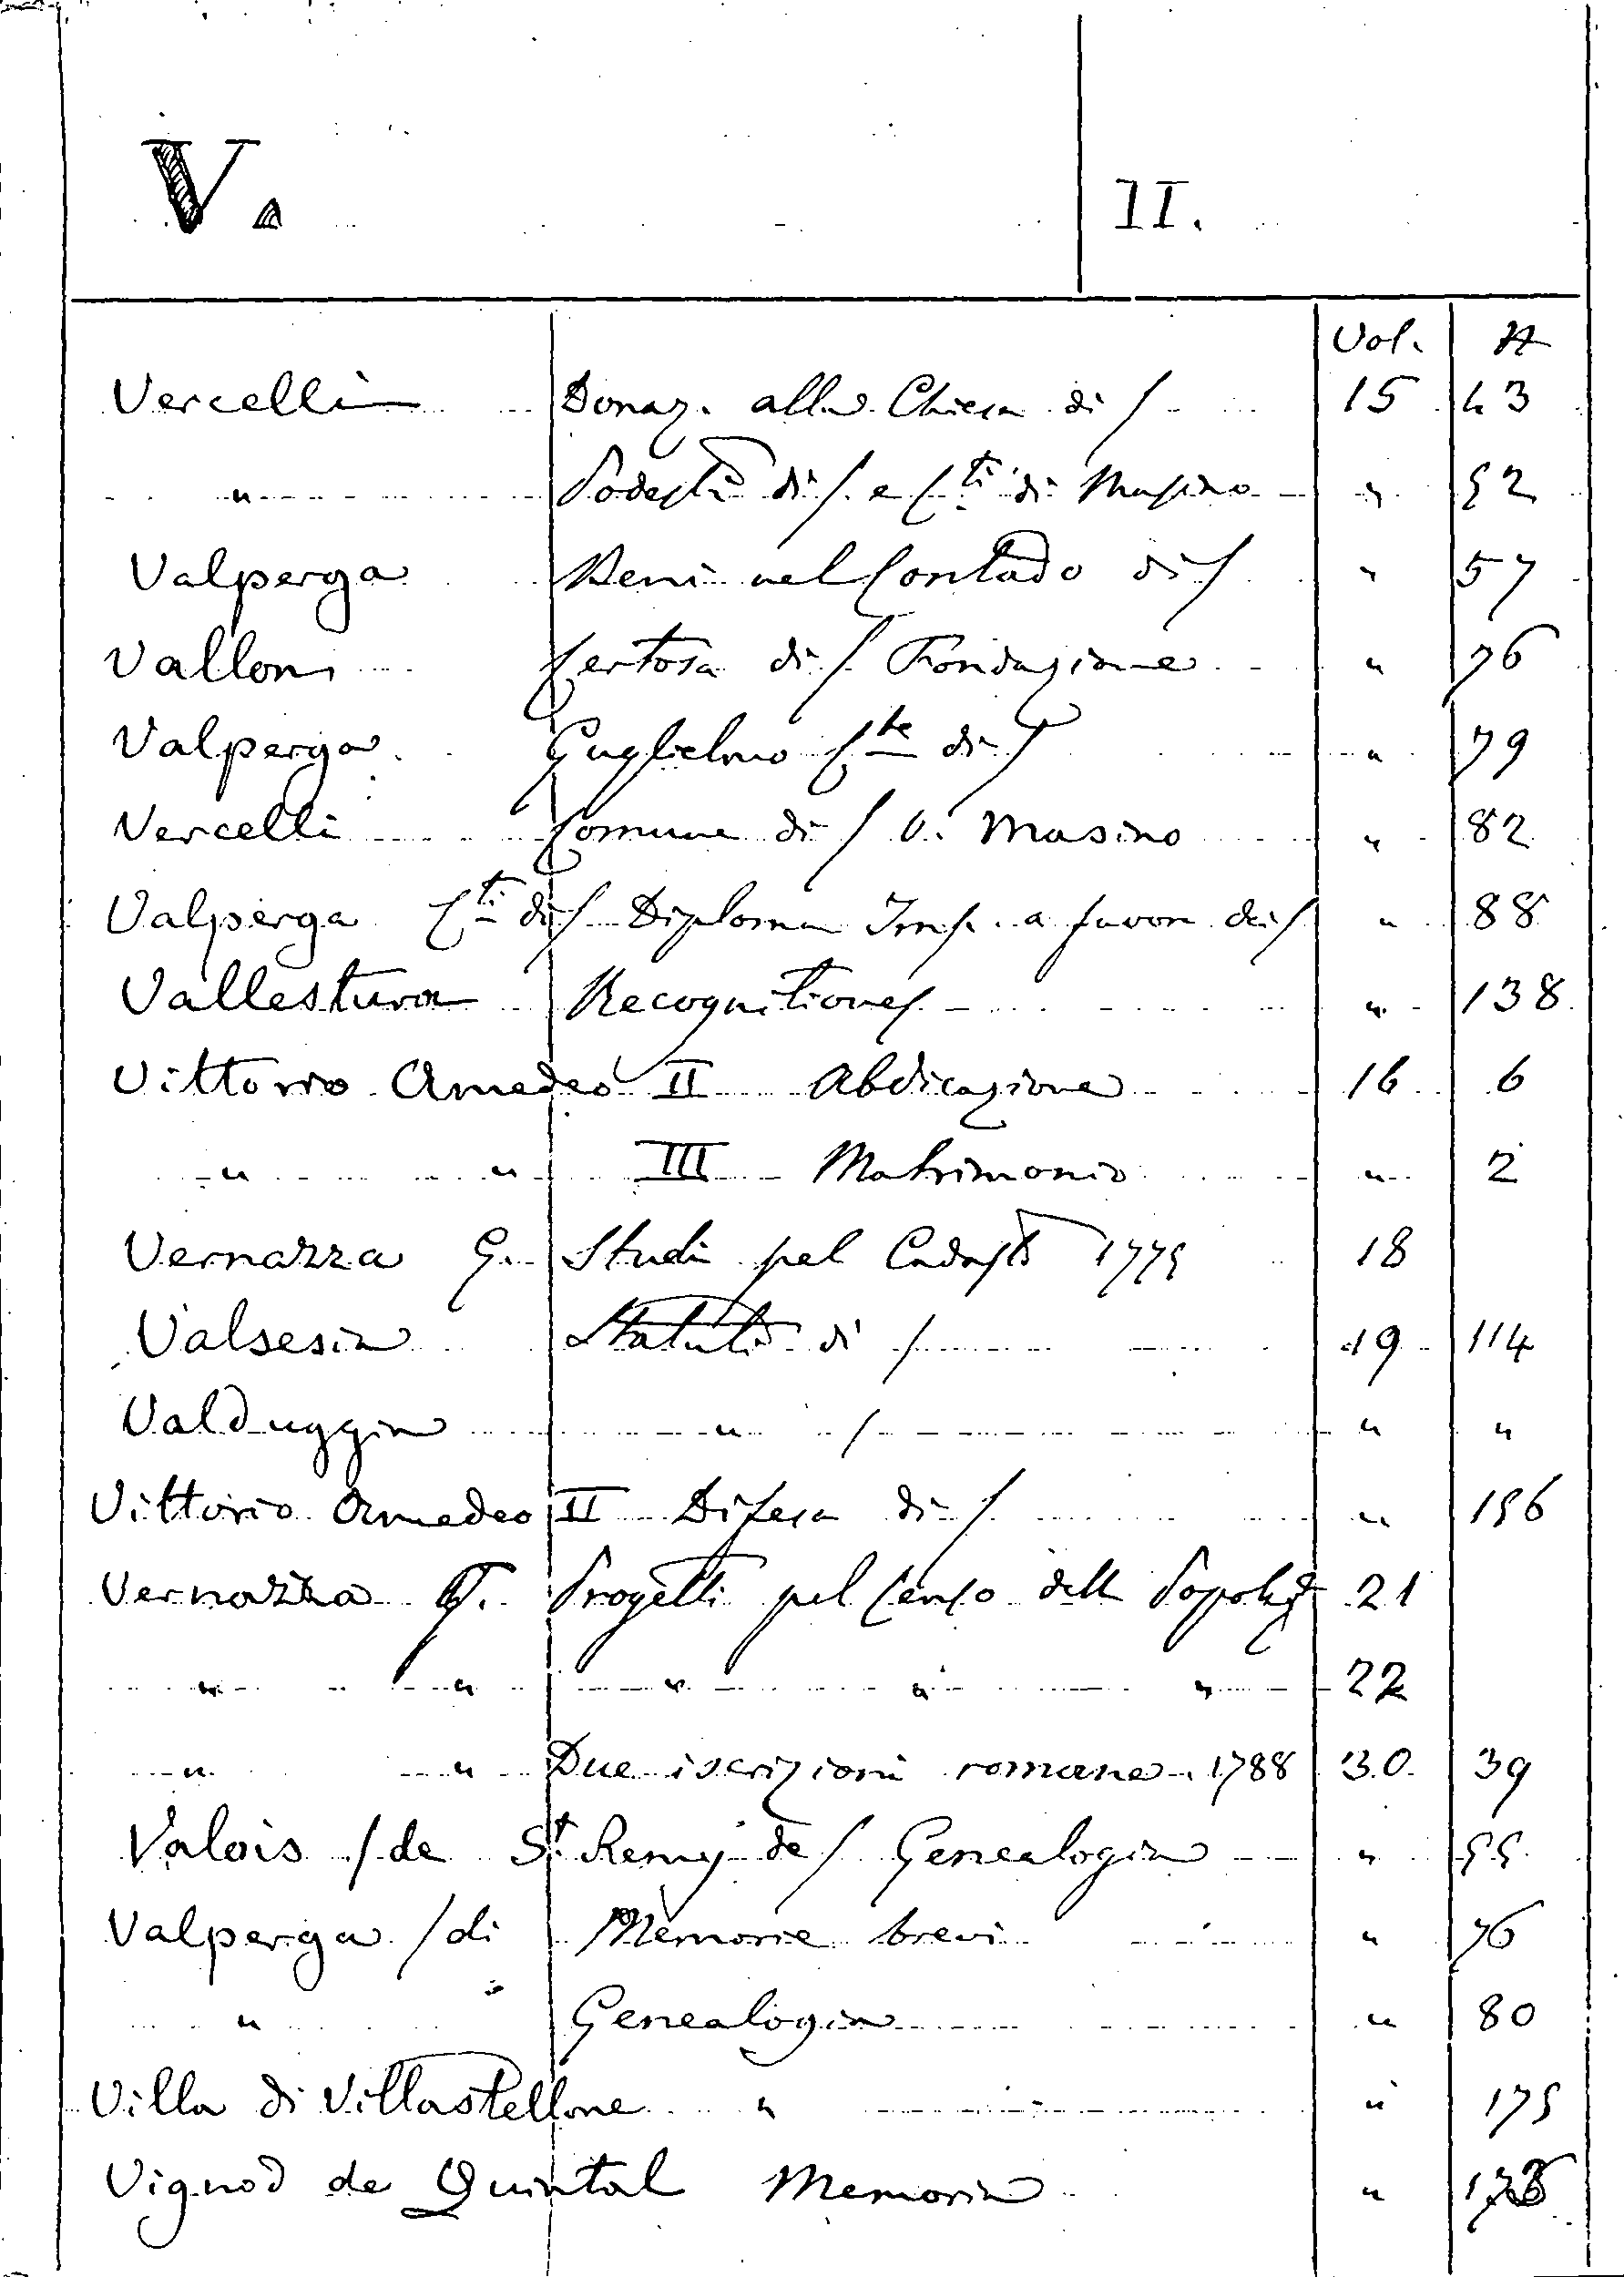 V. II.
Vol. N
Vercelli Donaz. alla Chiesa di / 15 43
" Podestà di /. e Cti di Masino " 52
Valperga Beni nel Contado di / " 57
Vallon Certosa di / Fondazione " 76
Valperga Guglielmo Cte di / " 79
Vercelli Comune di / V. Masino " 82
Valperga Cti di / Diploma Imp. a favore dei / " 88
Vallestura Recognitiones " 138
Vittorio Amedeo II Abdicazione 16 6
" " III Matrimonio " 2
Vernazza G. Studi pel Cadasto 1775 18
Valsesia Statuti di / 19 114
Valduggia " / " "
Vittorio Amedeo II Difesa di / " 156
Vernazza G. Progetti pel Censo della Popolaze 21
" " " " " 22
" " Due iscrizioni romane. 1788 30 39
Valois / de St. Remy de / Genealogia " 55
Valperga / di Memorie brevi " 76
" " Genealogia " 80
Villa di Villastellone " " 175
Vignod de Quintal Memoria "